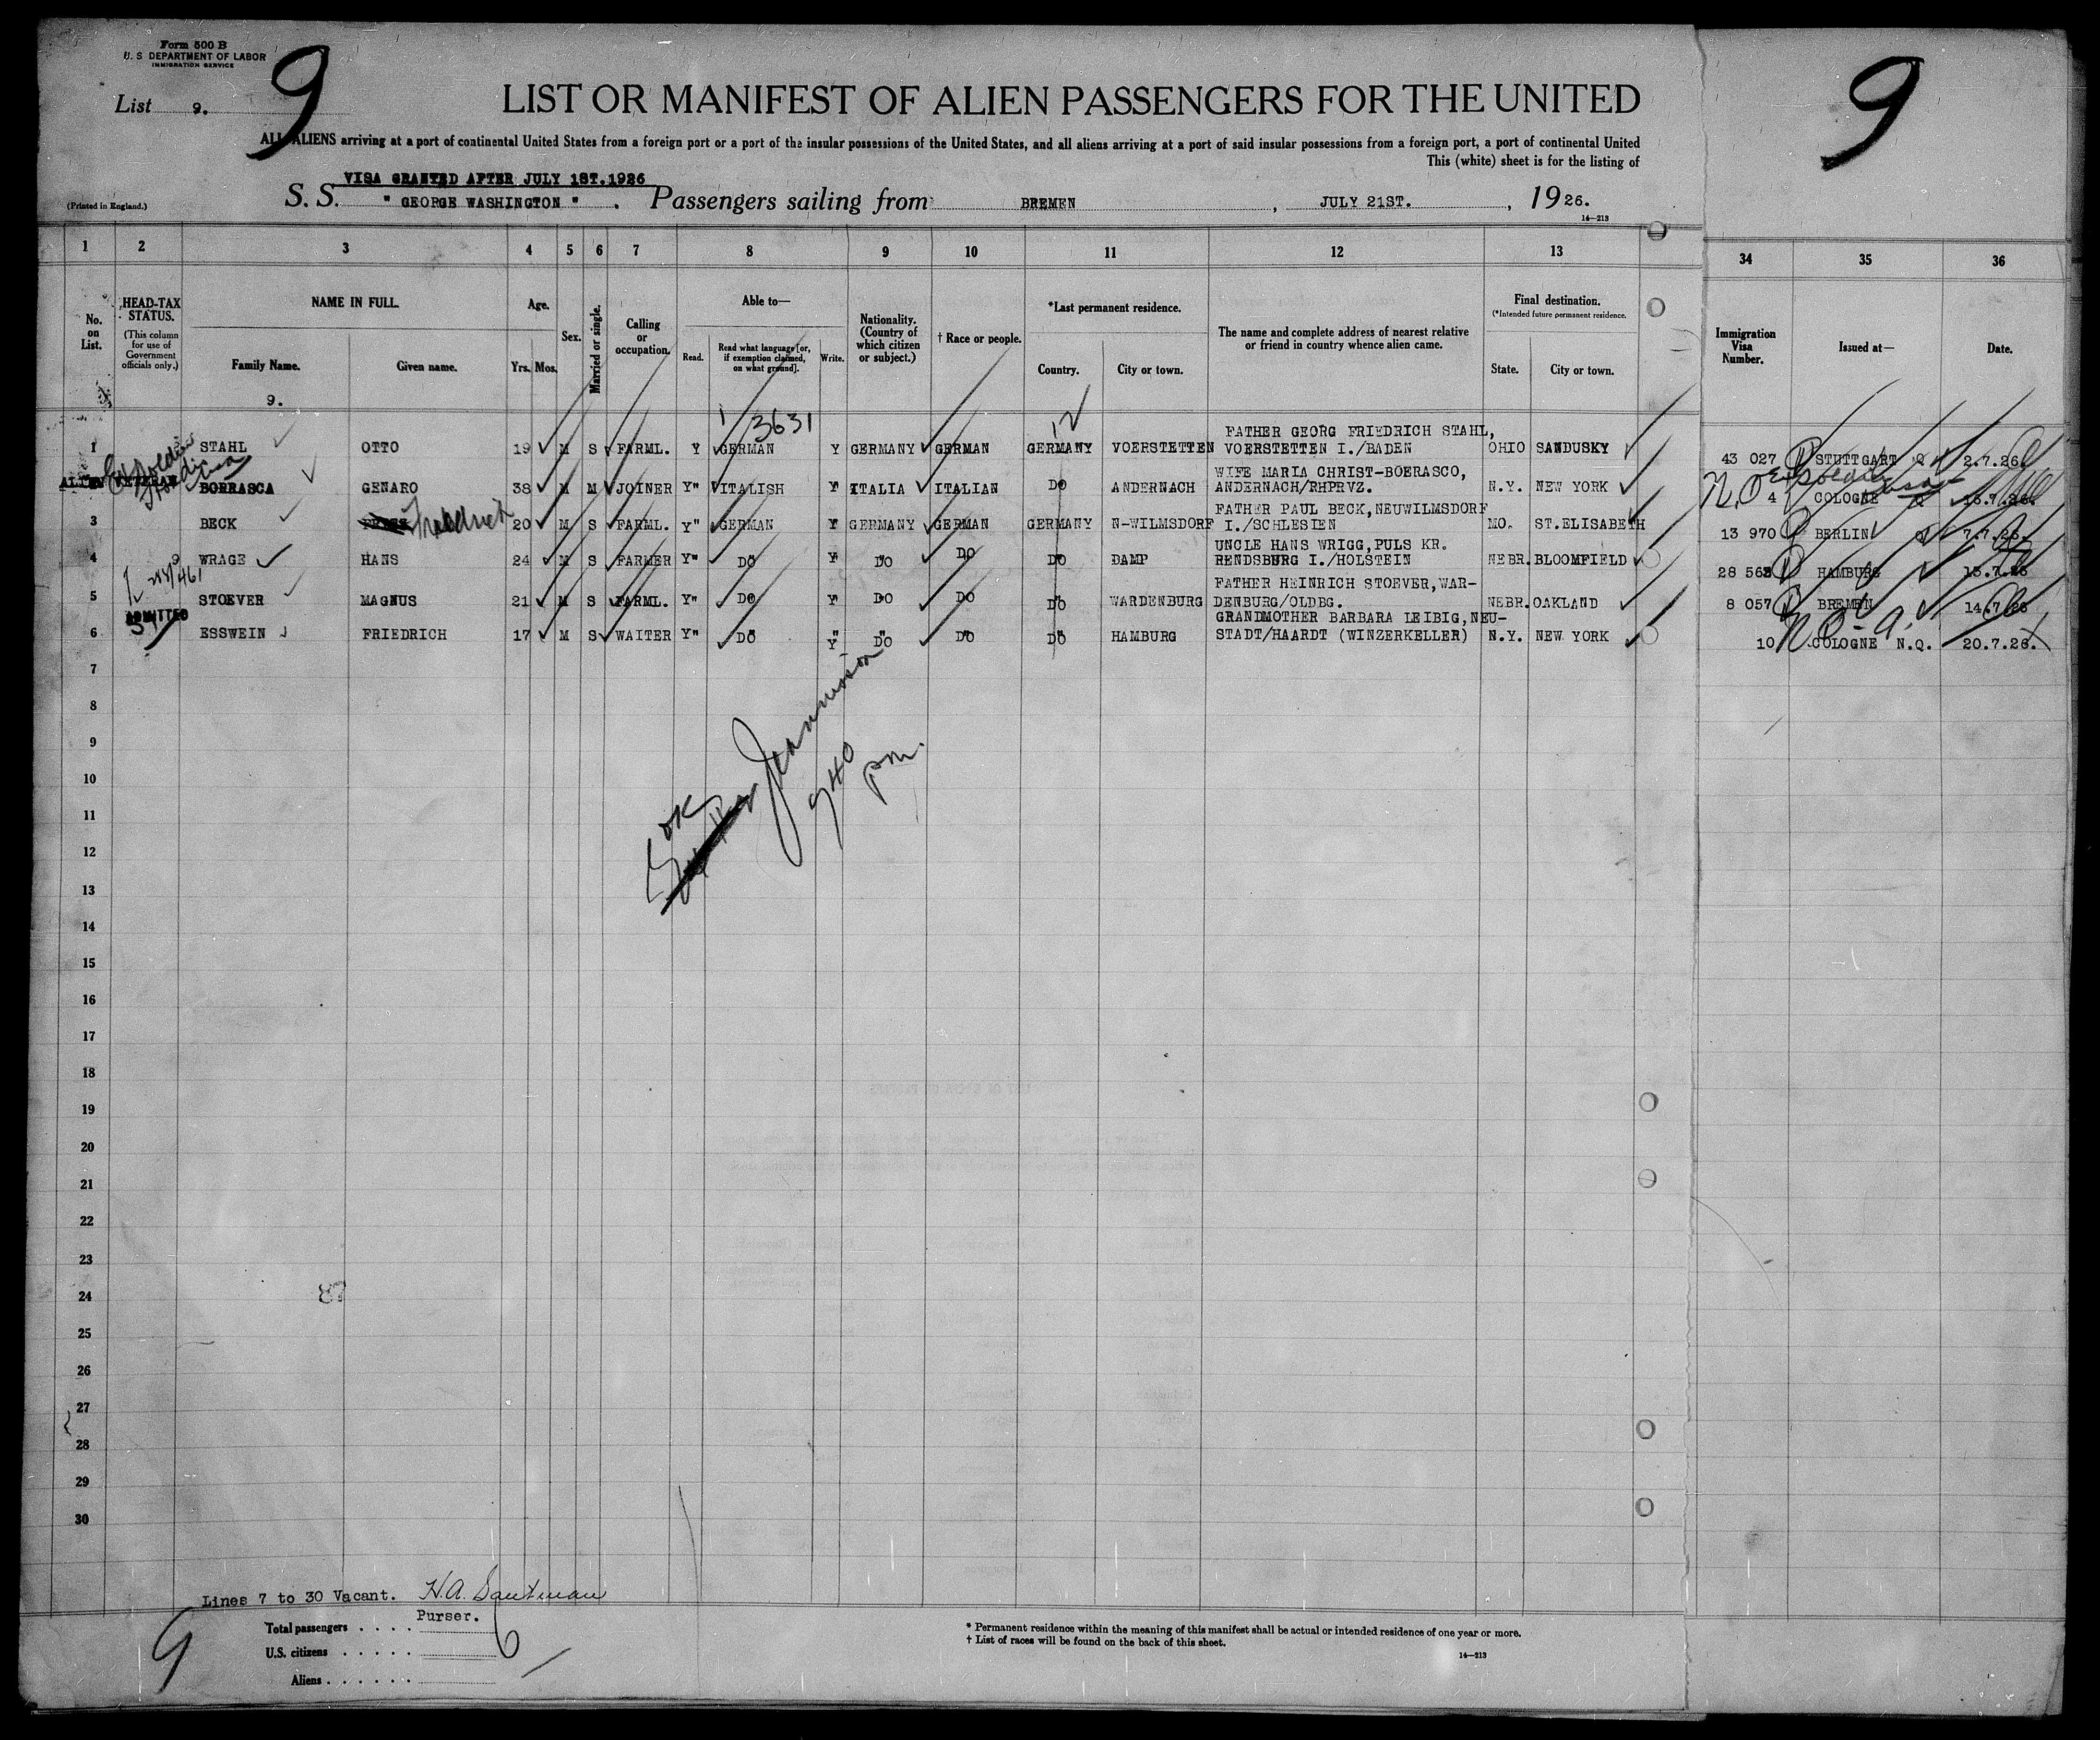 Form 500 B
U. S DEPARTMENT OF LABOR
IMMIGRATION SERVICE
9
9
List 9.
LIST OR MANIFEST OF ALIEN PASSENGERS FOR THE UNITED
ALL ALIENS arriving at a port of continental United States from a foreign port or a port of the insular possessions of the United States, and all aliens arriving at a port of said insular possessions from a foreign port, a port of continental United
This (white) sheet is for the listing of
VISA GRANTED AFTER JULY 1ST.1926
(Printed in England.)
S. S. " GEORGE WASHINGTON " . Passengers sailing from BREMEN , JULY 21ST. , 1926.
14—213
1 2 3 4 5 6 7 8 9 10 11 12 13 34 35 36
No. on List.
HEAD-TAX STATUS.
(This column for use of Government officials only.)
NAME IN FULL.
Family Name.
Given name.
9.
Age.
Yrs. Mos.
Sex.
Married or single.
Calling or occupation.
Able to—
Read.
Read what language [or, if exemption claimed, on what ground].
Write.
Nationality. (Country of which citizen or subject.)
† Race or people.
*Last permanent residence.
Country.
City or town.
The name and complete address of nearest relative or friend in country whence alien came.
Final destination.
(*Intended future permanent residence.
State.
City or town.
Immigration Visa Number.
Issued at—
Date.
3631
12
1 STAHL OTTO 19 M S FARML. Y GERMAN Y GERMANY GERMAN GERMANY VOERSTETTEN FATHER GEORG FRIEDRICH STAHL, VOERSTETTEN I./BADEN OHIO SANDUSKY 43 027 STUTTGART Q 2.7.26.
ALIEN VETERAN BORRASCA GENARO 38 M M JOINER Y" ITALISH Y ITALIA ITALIAN DO ANDERNACH WIFE MARIA CHRIST-BOERASCO, ANDERNACH/RHPRVZ. N.Y. NEW YORK 4 COLOGNE
3 BECK Friedrich 20 M S FARML. Y" GERMAN Y GERMANY GERMAN GERMANY N-WILMSDORF FATHER PAUL BECK,NEUWILMSDORF I./SCHLESIEN MO. ST.ELISABETH 13 970 BERLIN 7.7.26.
4 WRAGE HANS 24 M S FARMER Y" DO Y DO DO DO DAMP UNCLE HANS WRIGG,PULS KR. RENDSBURG I./HOLSTEIN NEBR. BLOOMFIELD HAMBURG
5 STOEVER MAGNUS 21 M S FARML. Y" DO Y DO DO DO WARDENBURG FATHER HEINRICH STOEVER,WAR- DENBURG/OLDBG. NEBR. OAKLAND 8 057 BREMEN 14.7.26
ADMITTED
6 ESSWEIN FRIEDRICH 17 M S WAITER Y" DO Y DO DO DO HAMBURG GRANDMOTHER BARBARA LEIBIG,NEU- STADT/HAARDT (WINZERKELLER) N.Y. NEW YORK 10 COLOGNE N.Q. 20.7.26.
7
8
9
OK
940
pm.
10
11
12
13
14
15
16
17
18
19
20
21
22
23
24
25
26
27
28
29
30
Lines 7 to 30 Vacant.
Purser.
9
Total passengers . . . . 6
U.S. citizens . . . . .
Aliens . . . . . .
* Permanent residence within the meaning of this manifest shall be actual or intended residence of one year or more.
† List of races will be found on the back of this sheet.
14—213